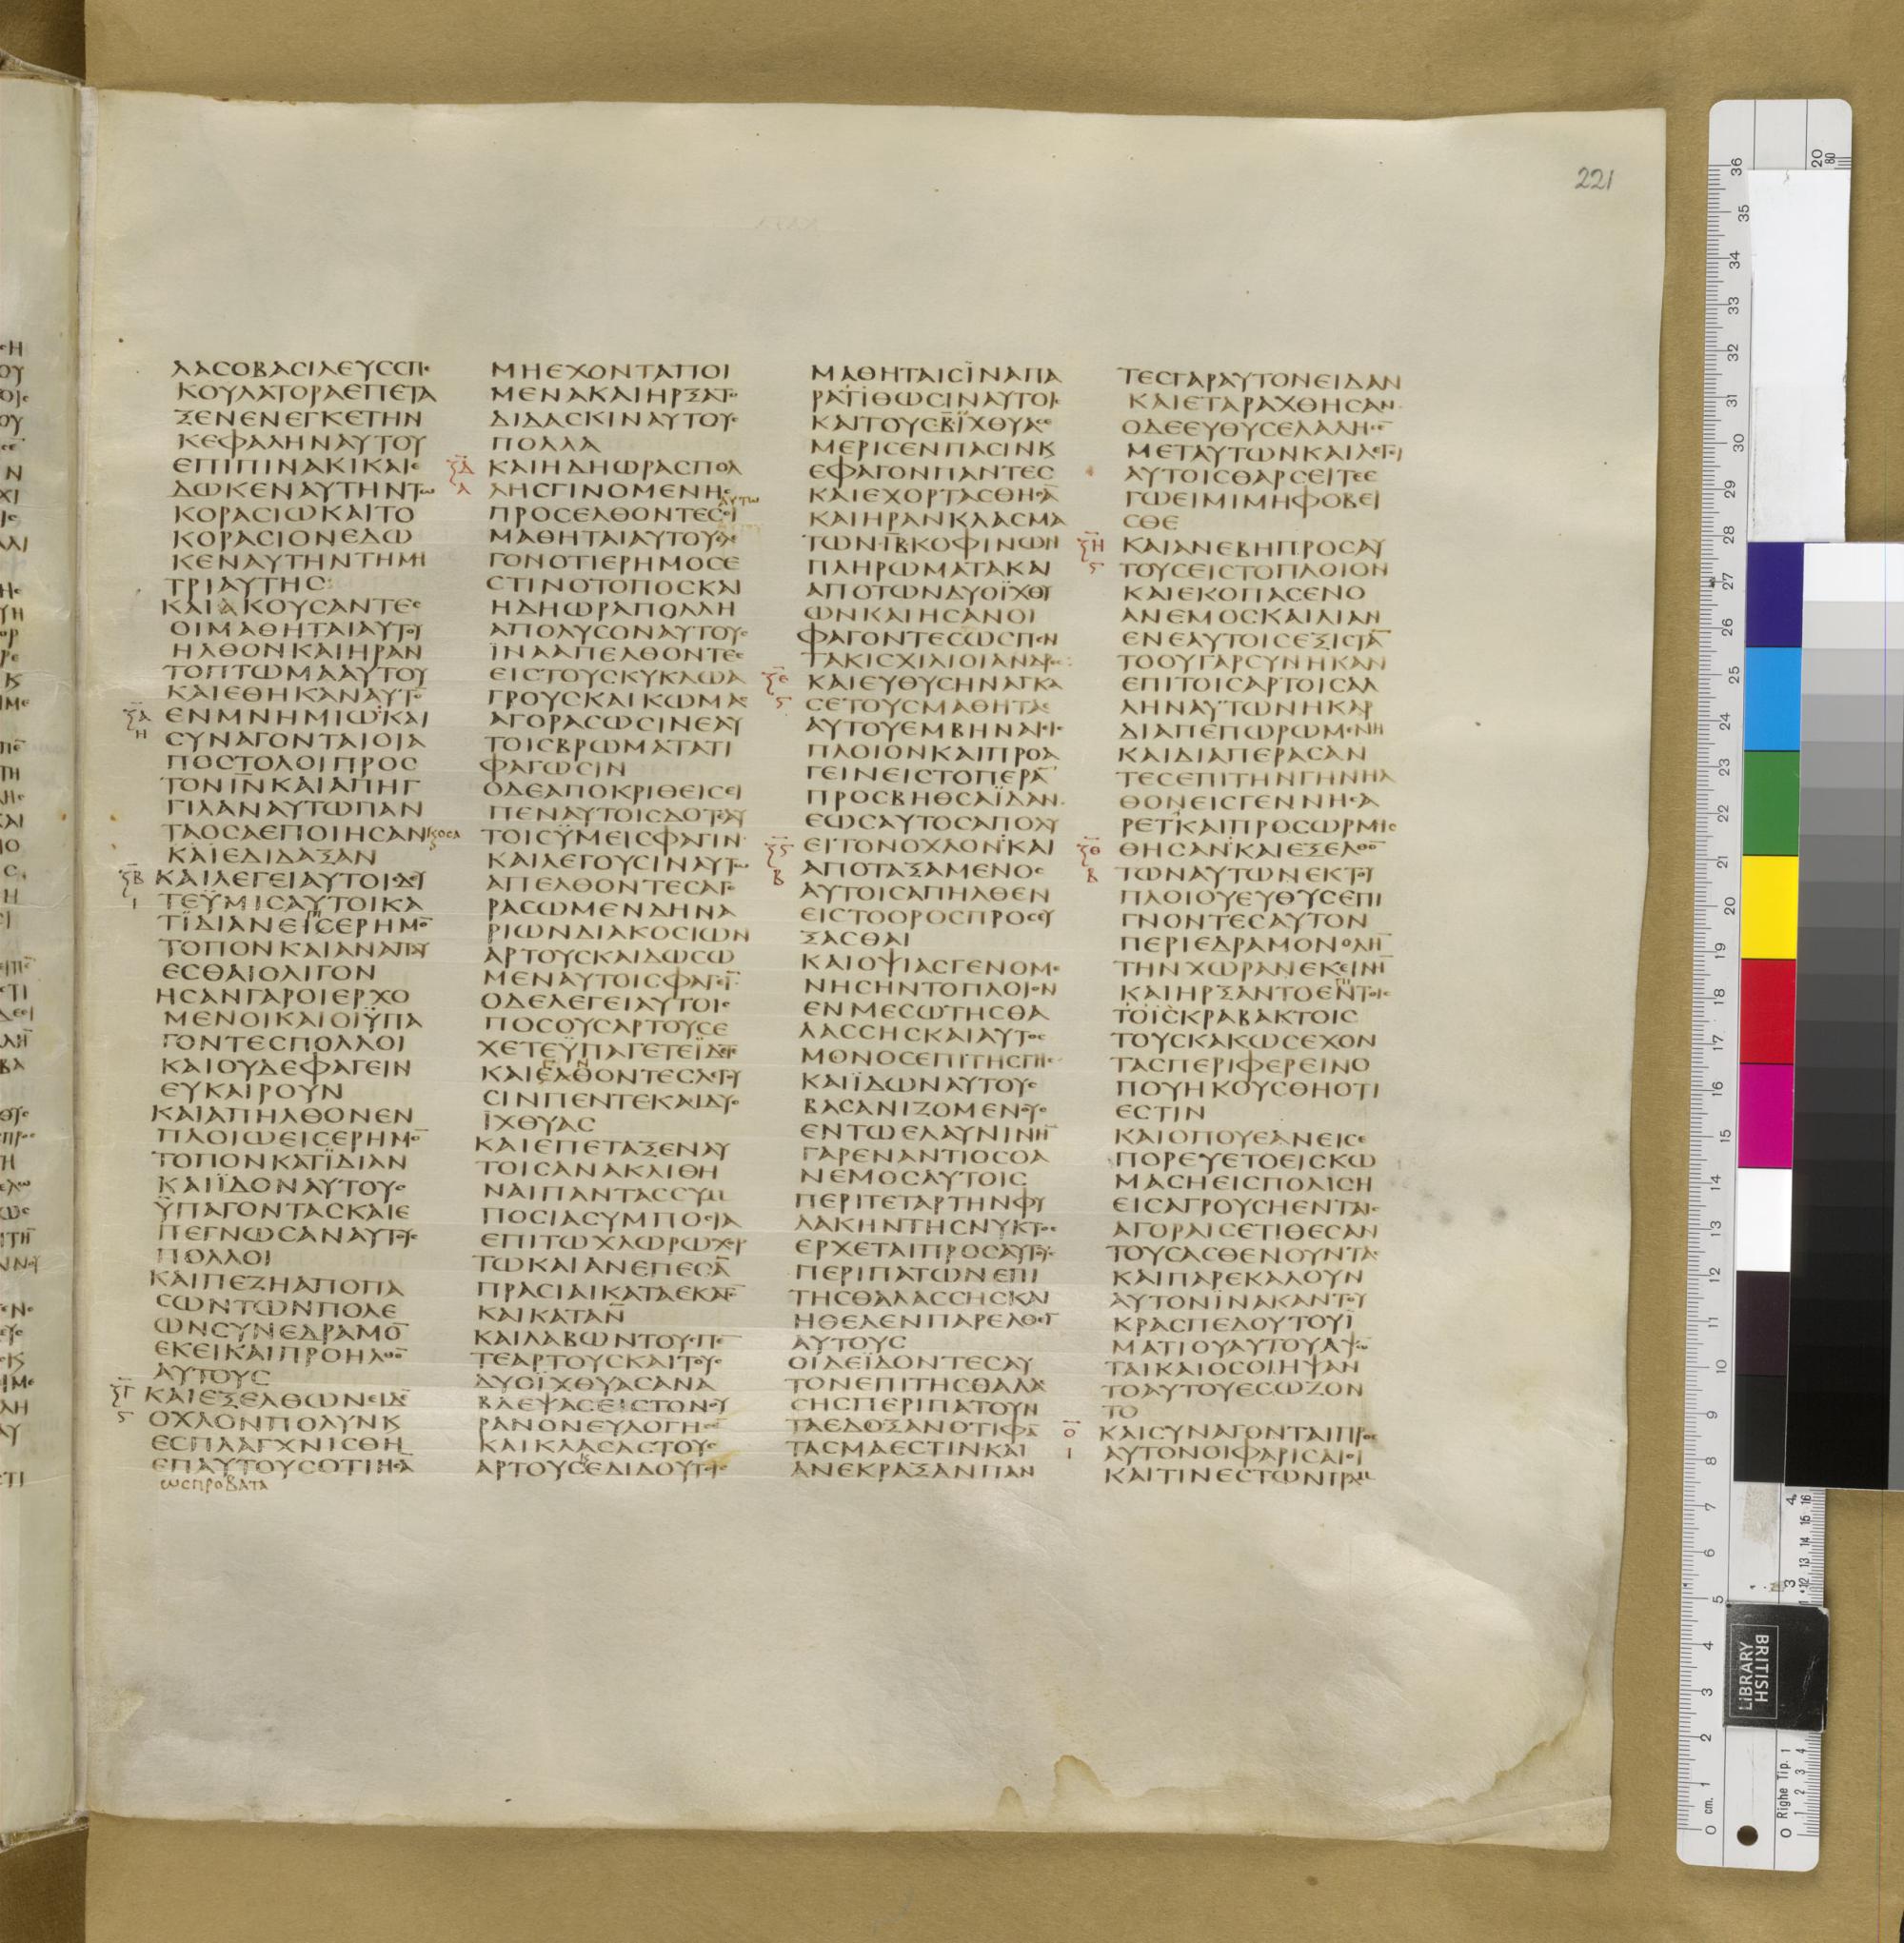 221
ΛΑСΟΒΑСΙΛΕΥССΠΕ
ΚΟΥΛΑΤΟΡΑΕΠΕΤΑ
ΞΕΝΕΝΕΓΚΕΤΗΝ
ΚΕΦΑΛΗΝΑΥΤΟΥ
ΕΠΙΠΙΝΑΚΙΚΑΙΕ
ΔΩΚΕΝΑΥΤΗΝΤΩ
ΚΟΡΑСΙΩΚΑΙΤΟ
ΚΟΡΑСΙΟΝΕΔΩ
ΚΕΝΑΥΤΗΝΤΗΜΗ
ΤΡΙΑΥΤΗС
ΚΑΙΑΚΟΥСΑΝΤΕС
ΟΙΜΑΘΗΤΑΙΑΥΤΟΥ
ΗΛΘΟΝΚΑΙΗΡΑΝ
ΤΟΠΤΩΜΑΑΥΤΟΥ
ΚΑΙΕΘΗΚΑΝΑΥΤΟ̅
ΕΝΜΝΗΜΙΩΚΑΙ
СΥΝΑΓΟΝΤΑΙΟΙΑ
ΠΟСΤΟΛΟΙΠΡΟС
ΤΟΝΙ̅Ν̅ΚΑΙΑΠΗΓ
ΓΙΛΑΝΑΥΤΩΠΑΝ
ΤΑΟСΑΕΠΟΙΗСΑΝ ϏΟСΑ
ΚΑΙΕΔΙΔΑΞΑΝ
ΚΑΙΛΕΓΕΙΑΥΤΟΙСΔΕΥ
ΤΕΫΜΙСΑΥΤΟΙΚΑ
ΤΪΔΙΑΝΕΙСΕΡΗΜΟ̅
ΤΟΠΟΝΚΑΙΑΝΑΠΑΥ
ΕСΘΑΙΟΛΙΓΟΝ
ΗСΑΝΓΑΡΟΙΕΡΧΟ
ΜΕΝΟΙΚΑΙΟΙΫΠΑ
ΓΟΝΤΕСΠΟΛΛΟΙ
ΚΑΙΟΥΔΕΦΑΓΕΙΝ
ΕΥΚΑΙΡΟΥΝ
ΚΑΙΑΠΗΛΘΟΝΕΝ
ΠΛΟΙΩΕΙСΕΡΗΜΟ̅
ΤΟΠΟΝΚΑΤΪΔΙΑΝ
ΚΑΙΪΔΟΝΑΥΤΟΥС
ΫΠΑΓΟΝΤΑСΚΑΙΕ
ΠΕΓΝΩСΑΝΑΥΤΟΥС
ΠΟΛΛΟΙ
ΚΑΙΠΕΖΗΑΠΟΠΑ
СΩΝΤΩΝΠΟΛΕ
ΩΝСΥΝΕΔΡΑΜΟ̅
ΕΚΕΙΚΑΙΠΡΟΗΛΘΟ̅
ΑΥΤΟΥС
ΚΑΙΕΞΕΛΘΩΝΕΙΔΕ̅
ΟΧΛΟΝΠΟΛΥΝΚ
ΕСΠΛΑΓΧΝΙСΘΗ
ΕΠΑΥΤΟΥСΟΤΙΗСΑ̅
ΩСΠΡΟΒΑΤΑ
ΜΗΕΧΟΝΤΑΠΟΙ
ΜΕΝΑΚΑΙΗΡΞΑΤΟ
ΔΙΔΑСΚΙΝΑΥΤΟΥС
ΠΟΛΛΑ
ΚΑΙΗΔΗΩΡΑСΠΟΛ
ΛΗСΓΙΝΟΜΕΝΗС
ΑΥΤΩ
ΠΡΟСΕΛΘΟΝΤΕСΟΙ
ΜΑΘΗΤΑΙΑΥΤΟΥΕΛΕ
ΓΟΝΟΤΙΕΡΗΜΟСΕ
СΤΙΝΟΤΟΠΟСΚΑΙ
ΗΔΗΩΡΑΠΟΛΛΗ
ΑΠΟΛΥСΟΝΑΥΤΟΥС
ΪΝΑΑΠΕΛΘΟΝΤΕС
ΕΙСΤΟΥСΚΥΚΛΩΑ
ΓΡΟΥСΚΑΙΚΩΜΑС
ΑΓΟΡΑСΩСΙΝΕΑΥ
ΤΟΙСΒΡΩΜΑΤΑΤΙ
ΦΑΓΩСΙΝ
ΟΔΕΑΠΟΚΡΙΘΕΙСΕΙ
ΠΕΝΑΥΤΟΙСΔΟΤΕΑΥ
ΤΟΙСΫΜΕΙСΦΑΓΙΝ
ΚΑΙΛΕΓΟΥСΙΝΑΥΤΩ
ΑΠΕΛΘΟΝΤΕСΑΓΟ
ΡΑСΩΜΕΝΔΗΝΑ
ΡΙΩΝΔΙΑΚΟСΙΩΝ
ΑΡΤΟΥСΚΑΙΔΩСΩ
ΜΕΝΑΥΤΟΙСΦΑΓΕΙ̅
ΟΔΕΛΕΓΕΙΑΥΤΟΙС
ΠΟСΟΥСΑΡΤΟΥСΕ
ΧΕΤΕΫΠΑΓΕΤΕΪΔΕΤΕ
ΚΑΙΕΛΘΟΝΤΕСΛΕΓΟΥ
СΙΝΠΕΝΤΕΚΑΙΔΥΟ
ΪΧΘΥΑС
ΚΑΙΕΠΕΤΑΞΕΝΑΥ
ΤΟΙСΑΝΑΚΛΙΘΗ
ΝΑΙΠΑΝΤΑССΥΜ
ΠΟСΙΑСΥΜΠΟСΙΑ
ΕΠΙΤΩΧΛΩΡΩΧΟΡ
ΤΩΚΑΙΑΝΕΠΕСΑ̅
ΠΡΑСΙΑΙΚΑΤΑΕΚΑΤΟ̅
ΚΑΙΚΑΤΑΝ̅
ΚΑΙΛΑΒΩΝΤΟΥСΠΕ̅
ΤΕΑΡΤΟΥСΚΑΙΤΟΥС
ΔΥΟΪΧΘΥΑСΑΝΑ
ΒΛΕΨΑСΕΙСΤΟΝΟΥ
ΡΑΝΟΝΕΥΛΟΓΗСΕ̅
ΚΑΙΚΛΑСΑСΤΟΥС
ΑΡΤΟΥСΕΔΙΔΟΥΤΟΙС
ΜΑΘΗΤΑΙСΪΝΑΠΑ
ΡΑΤΙΘΩСΙΝΑΥΤΟΙС
ΚΑΙΤΟΥСΒ̅ΪΧΘΥΑС
ΜΕΡΙСΕΝΠΑСΙΝΚ
ΕΦΑΓΟΝΠΑΝΤΕС
ΚΑΙΕΧΟΡΤΑСΘΗСΑ̅
ΚΑΙΗΡΑΝΚΛΑСΜΑ
ΤΩΝΙ̅Β̅ΚΟΦΙΝΩΝ
ΠΛΗΡΩΜΑΤΑΚΑΙ
ΑΠΟΤΩΝΔΥΟΪΧΘΥ
ΩΝΚΑΙΗСΑΝΟΙ
ΦΑΓΟΝΤΕСΩСΠΕΝ
ΤΑΚΙСΧΙΛΙΟΙΑΝΔΡΕС
ΚΑΙΕΥΘΥСΗΝΑΓΚΑ
СΕΤΟΥСΜΑΘΗΤΑС
ΑΥΤΟΥΕΜΒΗΝΑΙΕΙС
ΠΛΟΙΟΝΚΑΙΠΡΟΑ
ΓΕΙΝΕΙСΤΟΠΕΡΑ̅
ΠΡΟСΒΗΘСΑΪΔΑΝ
ΕΩСΑΥΤΟСΑΠΟΛΥ
ΕΙΤΟΝΟΧΛΟΝΚΑΙ
ΑΠΟΤΑΞΑΜΕΝΟС
ΑΥΤΟΙСΑΠΗΛΘΕΝ
ΕΙСΤΟΟΡΟСΠΡΟСΕΥ
ΞΑСΘΑΙ
ΚΑΙΟΨΙΑСΓΕΝΟΜΕ
ΝΗСΗΝΤΟΠΛΟΙΟΝ
ΕΝΜΕСΩΤΗСΘΑ
ΛΑССΗСΚΑΙΑΥΤΟС
ΜΟΝΟСΕΠΙΤΗСΓΗС
ΚΑΙΪΔΩΝΑΥΤΟΥС
ΒΑСΑΝΙΖΟΜΕΝΟΥС
ΕΝΤΩΕΛΑΥΝΙΝΗ̅
ΓΑΡΕΝΑΝΤΙΟСΟΑ
ΝΕΜΟСΑΥΤΟΙС
ΠΕΡΙΤΕΤΑΡΤΗΝΦΥ
ΛΑΚΗΝΤΗСΝΥΚΤΟС
ΕΡΧΕΤΑΙΠΡΟСΑΥΤΟΥС
ΠΕΡΙΠΑΤΩΝΕΠΙ
ΤΗСΘΑΛΑССΗСΚΑΙ
ΗΘΕΛΕΝΠΑΡΕΛΘΕΙ̅
ΑΥΤΟΥС
ΟΙΔΕΪΔΟΝΤΕСΑΥ
ΤΟΝΕΠΙΤΗСΘΑΛΑС
СΗСΠΕΡΙΠΑΤΟΥΝ
ΤΑΕΔΟΞΑΝΟΤΙΦΑ̅
ΤΑСΜΑΕСΤΙΝΚΑΙ
ΑΝΕΚΡΑΞΑΝΠΑΝ
ΤΕСΓΑΡΑΥΤΟΝΕΙΔΑΝ
ΚΑΙΕΤΑΡΑΧΘΗСΑΝ
ΟΔΕΕΥΘΥСΕΛΑΛΗСΕ̅
ΜΕΤΑΥΤΩΝΚΑΙΛΕΓΕΙ
ΑΥΤΟΙСΘΑΡСΕΙΤΕΕ
ΓΩΕΙΜΙΜΗΦΟΒΕΙ
СΘΕ
ΚΑΙΑΝΕΒΗΠΡΟСΑΥ
ΤΟΥСΕΙСΤΟΠΛΟΙΟΝ
ΚΑΙΕΚΟΠΑСΕΝΟ
ΑΝΕΜΟСΚΑΙΛΙΑΝ
ΕΝΕΑΥΤΟΙСΕΞΙСΤΑ̅
ΤΟΟΥΓΑΡСΥΝΗΚΑΝ
ΕΠΙΤΟΙСΑΡΤΟΙСΑΛ
ΛΗΝΑΥΤΩΝΗΚΑΡ
ΔΙΑΠΕΠΩΡΩΜΕΝΗ
ΚΑΙΔΙΑΠΕΡΑСΑΝ
ΤΕСΕΠΙΤΗΝΓΗΝΗΛ
ΘΟΝΕΙСΓΕΝΝΗСΑ
ΡΕΤΚΑΙΠΡΟСΩΡΜΙС
ΘΗСΑΝΚΑΙΕΞΕΛΘΟ̅
ΤΩΝΑΥΤΩΝΕΚΤΟΥ
ΠΛΟΙΟΥΕΥΘΥСΕΠΙ
ΓΝΟΝΤΕСΑΥΤΟΝ
ΠΕΡΙΕΔΡΑΜΟΝΟΛΗ̅
ΤΗΝΧΩΡΑΝΕΚΕΙΝΗ̅
ΚΑΙΗΡΞΑΝΤΟΕΝΤΟΙС
ΤΟΙСΚΡΑΒΑΚΤΟΙС
ΤΟΥСΚΑΚΩСΕΧΟΝ
ΤΑСΠΕΡΙΦΕΡΕΙΝΟ
ΠΟΥΗΚΟΥСΘΗΟΤΙ
ΕСΤΙΝ
ΚΑΙΟΠΟΥΕΑΝΕΙСΕ
ΠΟΡΕΥΕΤΟΕΙСΚΩ
ΜΑСΗΕΙСΠΟΛΙСΗ
ΕΙСΑΓΡΟΥСΗΕΝΤΑΙС
ΑΓΟΡΑΙСΕΤΙΘΕСΑΝ
ΤΟΥСΑСΘΕΝΟΥΝΤΑС
ΚΑΙΠΑΡΕΚΑΛΟΥΝ
ΑΥΤΟΝΪΝΑΚΑΝΤΟΥ
ΚΡΑСΠΕΔΟΥΤΟΥΪ
ΜΑΤΙΟΥΑΥΤΟΥΑΨΩ̅
ΤΑΙΚΑΙΟСΟΙΗΨΑΝ
ΤΟΑΥΤΟΥΕСΩΖΟΝ
ΤΟ
ΚΑΙСΥΝΑΓΟΝΤΑΙΠΡΟС
ΑΥΤΟΝΟΙΦΑΡΙСΑΙΟΙ
ΚΑΙΤΙΝΕСΤΩΝΓΡΑΜ
BRITISH
LIBRARY